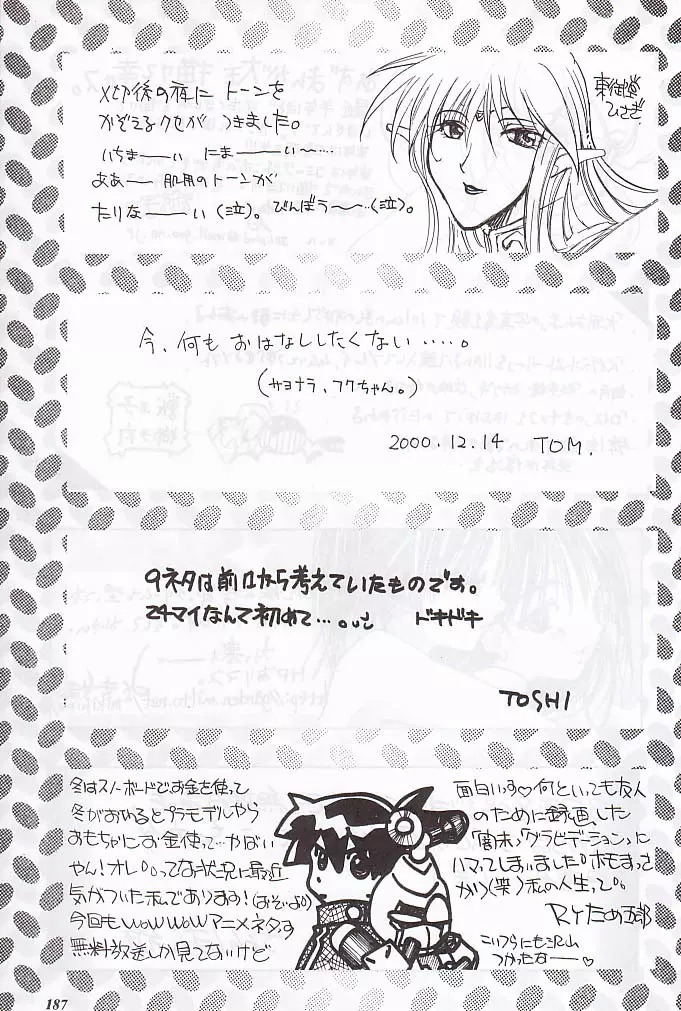 〆切後の夜に トーンを
かぞえるクセが つきました。
いちまーーい にまーーーい〜……
ああー 肌用のトーンが
たりなーーーい(泣)。びんぼう〜〜…(泣)。
東御堂
ひさぎ
今、何も おはなししたくない ……。
(サヨナラ、フクちゃん。)
2000.12.14 TOM.
9ネタは前から考えていたものです。
24マイなんて初めて…。 ドキドキ
TOSHI
冬はスノーボードでお金を使って
冬がおわるとプラモデルやら
おもちゃにお金使って…かばい
やん!オレ。。ってな状況に最近
気がついた私であります!(おそいよ)
今回もWOWWOWアニメネタっす
無料放送しか見てないけど
面白いっす♡何といっても友人
のために録画した
「闇末」「グラビテーション」に
ハマってしまいました。ホモまっさ
かり(笑)私の人生って。
RYため五郎
こいつらにも沢山
つかったなー♡
187